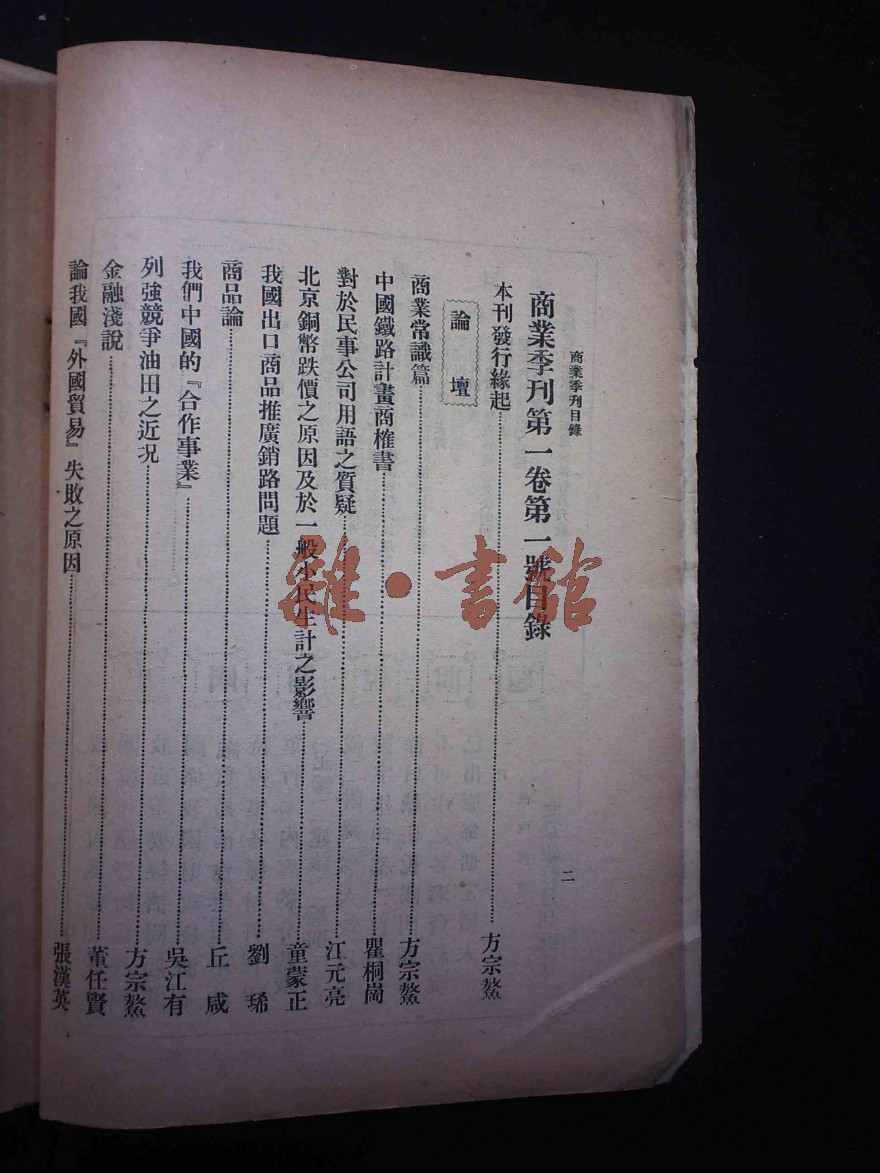 商業季刊目錄
二
商業季刊第一卷第一號目錄
本刊發行緣起 方宗鰲
論壇
商業常識篇 方宗鰲
中國鐵路計畫商榷書 瞿桐崗
對於民事公司用語之質疑 江元亮
北京銅幣跌價之原因及於一般小民生計之影響 童蒙正
我國出口商品推廣銷路問題 劉琋
商品論 丘咸
我們中國的『合作事業』 吳江有
列強競爭油田之近況 方宗鰲
金融淺說 董任賢
論我國『外國貿易』失敗之原因 張漢英
雜·書館